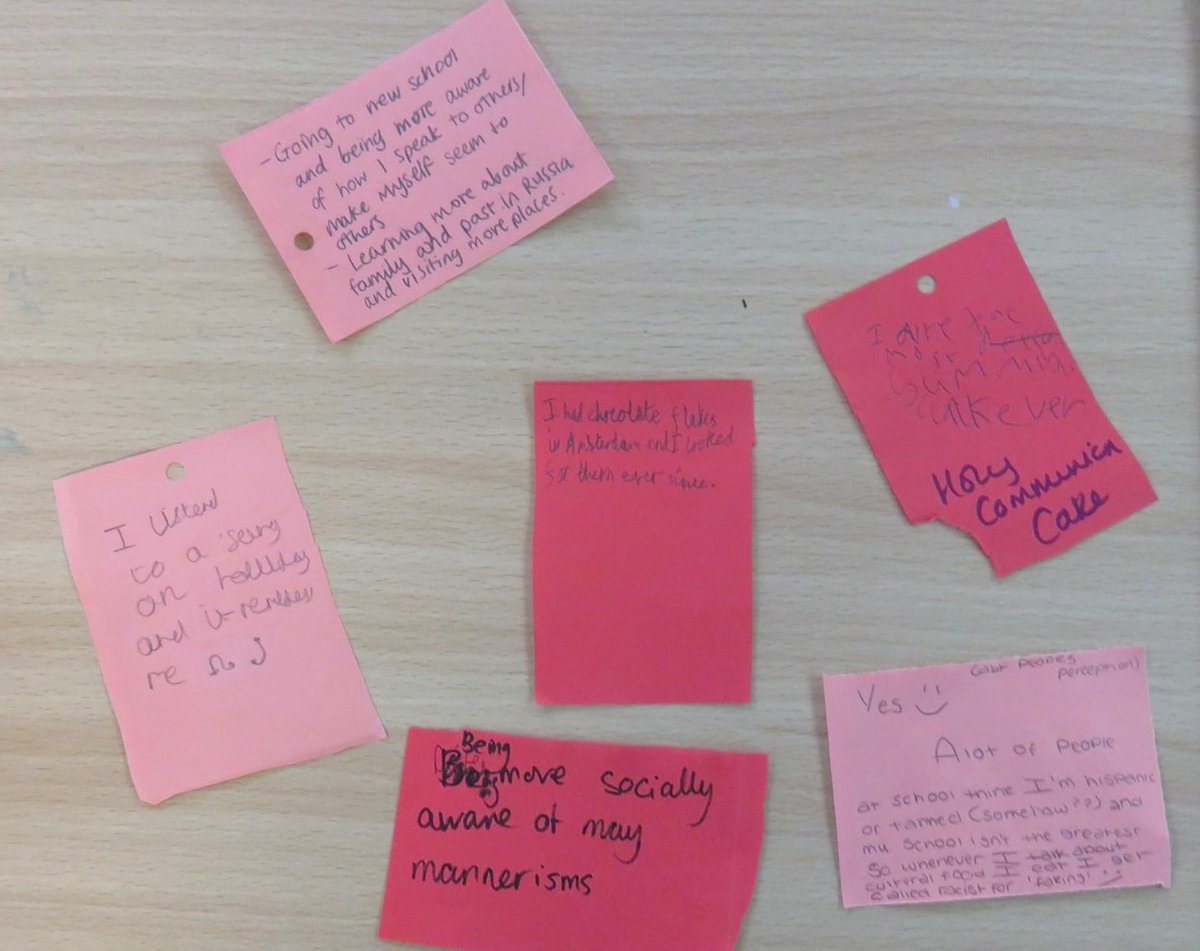 - Going to new school
and being more aware
of how I speak to others/
make myself seem to
others
- Learning more about
family and past in Russia
and visiting more places.
I the
most
yummi
ever
Holy
Communion
Cake
I had chocolate flakes
in Amsterdam and I looked
for them ever since.
I listend
to a song
on holliday
and it
me
Being
more socially
aware of may
mannerisms
(abt peoples
perception)
Yes
Alot of people
at school think I'm hispanic
or tanned (somehow??) and
my school isn't the greatest
so whenever I talk about
cultural food I eat I get
called racist for 'faking'